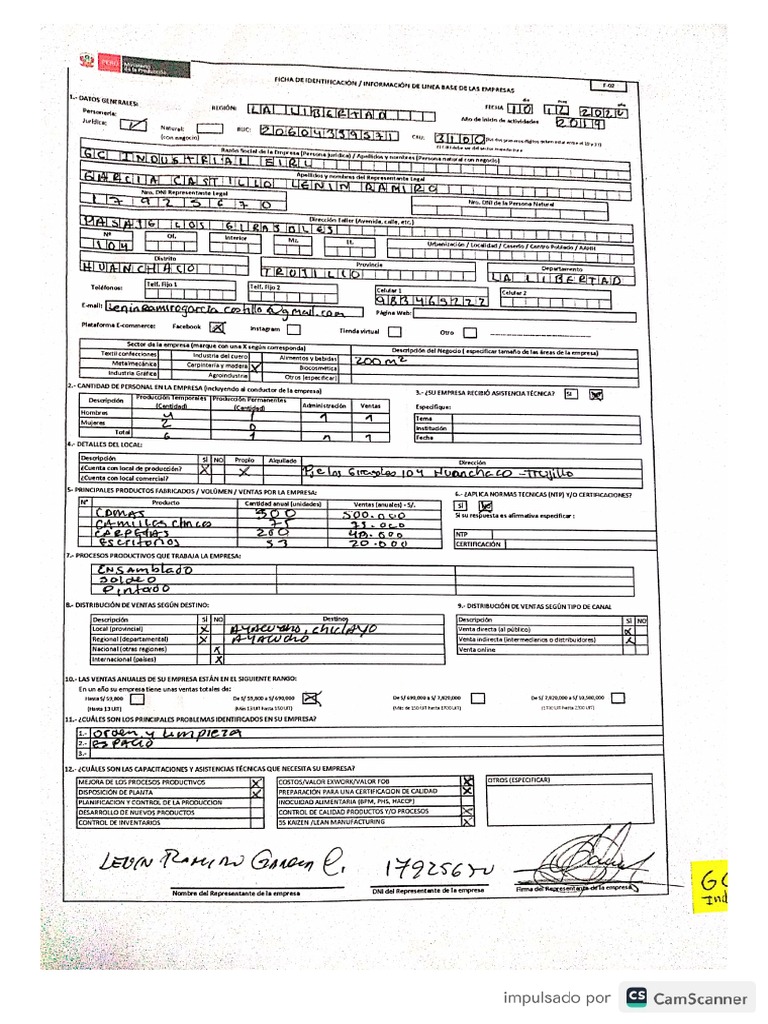 PERÚ Ministerio de la Producción
FICHA DE IDENTIFICACIÓN / INFORMACIÓN DE LINEA BASE DE LAS EMPRESAS
F-02
1.- DATOS GENERALES:
REGIÓN: LA LIBERTAD
FECHA 10 12 2020
día mes año
Personería:
Jurídica: ✓ Natural: (con negocio) RUC: 20604359571 CIIU: 3100
Año de inicio de actividades 2019
Razón Social de la Empresa (Persona Jurídica) / Apellidos y nombres (Persona natural con negocio)
GC INDUSTRIAL EIRL
Apellidos y nombres del Representante Legal
GARCIA CASTILLO LENIN RAMIRO
Nro. DNI Representante Legal Nro. DNI de la Persona Natural
17925670
Dirección Taller (Avenida, calle, etc.)
PASAJE LOS GIRASOLES
Nº Of. Interior Mz. Lt. Urbanización / Localidad / Caserío / Centro Poblado / AAHH
104
Distrito Provincia Departamento
HUANCHACO TRUJILLO LA LIBERTAD
Teléfonos: Telf. Fijo 1 Telf. Fijo 2 Celular 1 Celular 2
983469222
E-mail: leninramirogarcia castillo@gmail.com Página Web:
Plataforma E-commerce: Facebook X Instagram Tienda virtual Otro
Sector de la empresa (marque con una X según corresponda) Descripción del Negocio ( especificar tamaño de las áreas de la empresa)
Textil confecciones Industria del cuero Alimentos y bebidas 200 m²
Metalmecánica Carpintería y madera X Biocosmetica
Industria Gráfica Agroindustria Otros (especificar)
2.- CANTIDAD DE PERSONAL EN LA EMPRESA (incluyendo al conductor de la empresa)
3.- ¿SU EMPRESA RECIBIÓ ASISTENCIA TÉCNICA? SI X
Descripción Producción Temporales (Cantidad) Producción Permanentes (Cantidad) Administración Ventas
Especifique:
Hombres 4 1 1 1
Tema
Mujeres 2 0
Institución
Total 6 1 1 1
Fecha
4.- DETALLES DEL LOCAL:
Descripción SÍ NO Propio Alquilado Dirección
¿Cuenta con local de producción? X X Pje los Girasoles 104 Huanchaco - Trujillo
¿Cuenta con local comercial?
5- PRINCIPALES PRODUCTOS FABRICADOS / VOLÚMEN / VENTAS POR LA EMPRESA:
6.- ¿APLICA NORMAS TECNICAS (NTP) Y/O CERTIFICACIONES?
Nº Producto Cantidad anual (unidades) Ventas (anuales) - S/.
SI X
CAMAS 500 500.000
Si su respuesta es afirmativa especificar :
CAMILLAS CLINICAS 75 75.000
CARPETAS 200 40.000
NTP
ESCRITORIOS 53 20.000
CERTIFICACIÓN
7.- PROCESOS PRODUCTIVOS QUE TRABAJA LA EMPRESA:
ENSAMBLADO
SOLDEO
PINTADO
8.- DISTRIBUCIÓN DE VENTAS SEGÚN DESTINO:
9.- DISTRIBUCIÓN DE VENTAS SEGÚN TIPO DE CANAL
Descripción SÍ NO Destinos
Descripción SÍ NO
Local (provincial) X AYACUCHO, CHICLAYO
Venta directa (al público) X
Regional (departamental) X AYACUCHO
Venta indirecta (intermedierios o distribuidores) X
Nacional (otras regiones) X
Venta online
Internacional (países) X
10.- LAS VENTAS ANUALES DE SU EMPRESA ESTÁN EN EL SIGUIENTE RANGO:
En un año su empresa tiene unas ventas totales de:
Hasta S/ 59,800 De S/ 59,800 a S/ 690,000 X De S/ 690,000 a S/ 7,820,000 De S/ 7,820,000 a S/ 10,580,000
(Hasta 13 UIT) (Más 13 UIT hasta 150 UIT) (Más de 150 UIT hasta 1700 UIT) (1700 UIT hasta 2300 UIT)
11.- ¿CUÁLES SON LOS PRINCIPALES PROBLEMAS IDENTIFICADOS EN SU EMPRESA?
1.- orden y limpieza
2.- ESPACIO
3.-
12.- ¿CUÁLES SON LAS CAPACITACIONES Y ASISTENCIAS TÉCNICAS QUE NECESITA SU EMPRESA?
MEJORA DE LOS PROCESOS PRODUCTIVOS X COSTOS/VALOR EXWORK/VALOR FOB X OTROS (ESPECIFICAR)
DISPOSICIÓN DE PLANTA X PREPARACIÓN PARA UNA CERTIFICACION DE CALIDAD X
PLANIFICACION Y CONTROL DE LA PRODUCCION INOCUIDAD ALIMENTARIA (BPM, PHS, HACCP)
DESARROLLO DE NUEVOS PRODUCTOS CONTROL DE CALIDAD PRODUCTOS Y/O PROCESOS X
CONTROL DE INVENTARIOS 5S KAIZEN /LEAN MANUFACTURING X
LENIN RAMIRO GARCIA C. 17925670
Nombre del Representante de la empresa DNI del Representante de la empresa Firma del Representante de la empresa
GC
Ind
impulsado por CS CamScanner